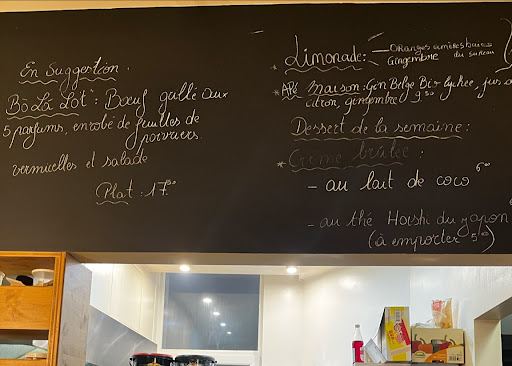 En Suggestion.
Bò Lá Lot : Bœuf grillé aux
5 parfums, enrobé de feuilles de
poivriers.
vermicelles et salade
Plat : 17.00
Limonade : - Oranges amères baies
Gingembre du sureau
* APÉ maison : Gin Belge Bio lychee, jus
citron, gingembre 9.50
Dessert de la semaine :
* Crème brûlée :
- au lait de coco 6.00
- au thé Hoishi du japon
(à emporter 5.00)